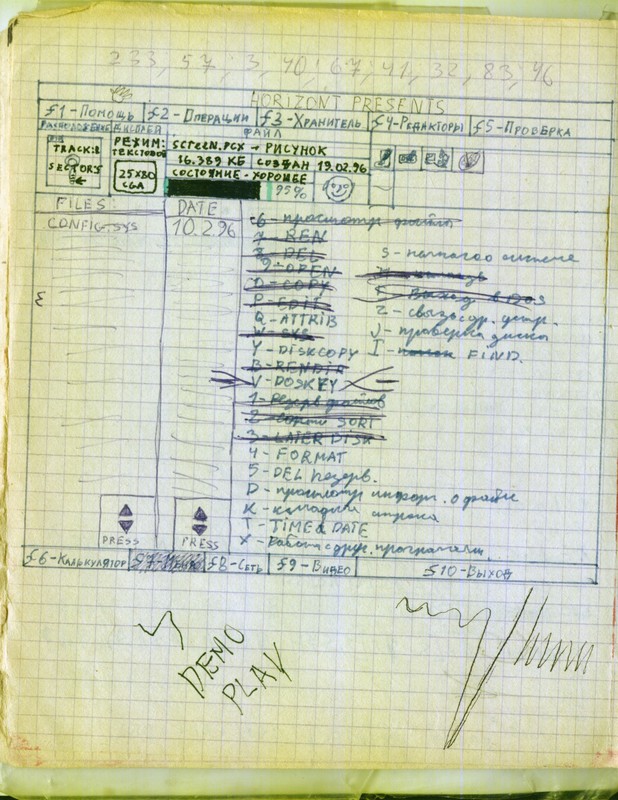 233, 57; 3, 40; 67, 41, 32, 83, 46
HORIZONT PRESENTS
f1-Помощь f2-Операции f3-Хранитель f4-Редакторы f5-Проверка
РАСПОЛОЖЕНИЕ ДИСПЛЕЙ ФАЙЛ
TRACK:8 РЕЖИМ: ТЕКСТОВОЙ SCREEN.PCX → РИСУНОК
SECTOR:5 25X80 CGA 16.389 КБ СОЗДАН 19.02.96
СОСТОЯНИЕ - ХОРОШЕЕ
95%
FILES: DATE
CONFIG.SYS 10.2.96
6 - просмотр файла
7 - REN
8 - DEL
9 - OPEN
O - COPY
P - EDIT
Q - ATTRIB
W - SKS
Y - DISKCOPY
B - RENDIR
V - DOSKEY
1 - Резерв файлов
2 - SORT
3 - LATER DISK
4 - FORMAT
5 - DEL Резерв.
D - просмотр информ. о файле
K - командная строка
T - TIME & DATE
X - Работа с друг. программами
S - системе
F - Выход в DOS
Z - связь с др. устр.
J - проверка диска
I - FIND.
PRESS PRESS
f6-Калькулятор f8-Сеть f9-Видео f10-Выход
DEMO
PLAY